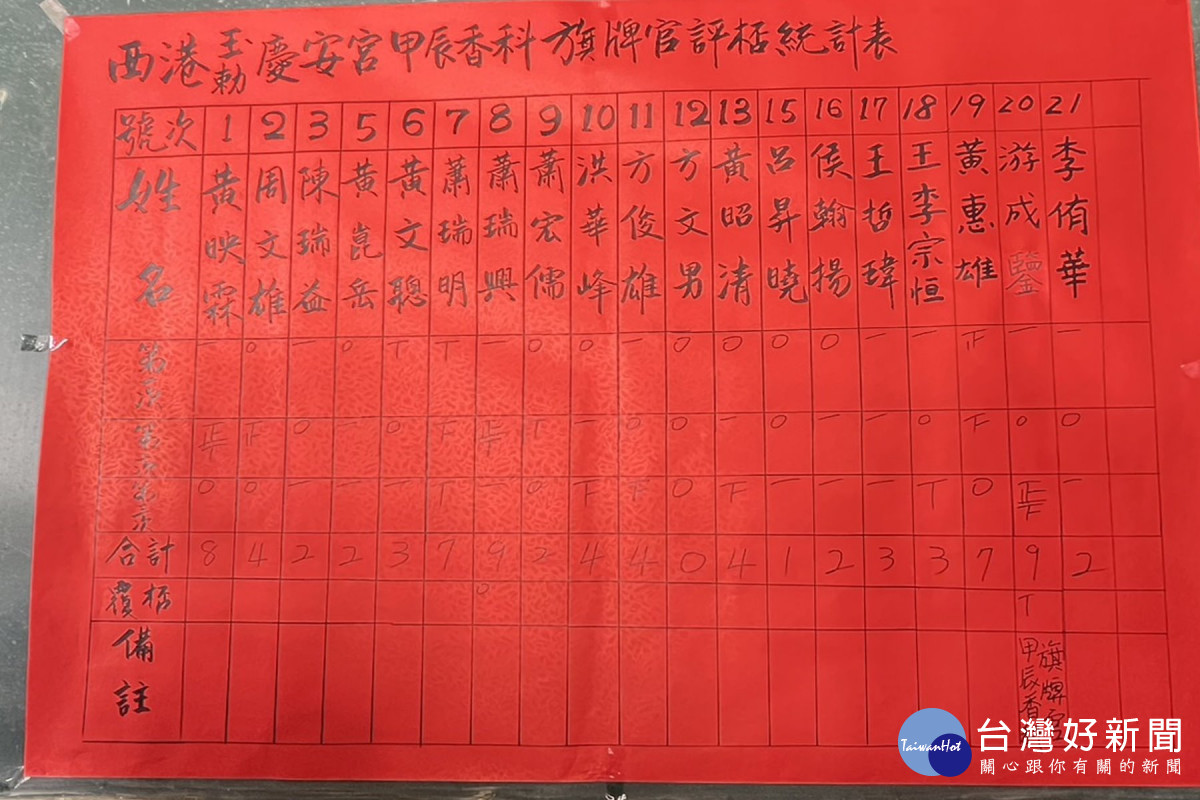 西港玉勅慶安宮甲辰香科旗牌官評桮統計表
號次 1 2 3 5 6 7 8 9 10 11 12 13 15 16 17 18 19 20 21
姓名 黃映霖 周文雄 陳瑞益 黃崑岳 黃文聰 蕭瑞明 蕭瑞興 蕭宏儒 洪華峰 方俊雄 方文男 黃昭清 呂昇曉 侯翰揚 王哲瑋 王李宗恒 黃惠雄 游成鑑 李侑華
第一次 一 0 一 0 T T 一 0 0 一 0 0 0 0 一 一 正 一 一
第二次
第三次
合計 8 4 2 2 3 7 9 2 4 4 0 4 1 2 3 3 7 9 2
覆桮 0 T
備註 甲辰香科旗牌官
TaiwanHot 台灣好新聞
關心跟你有關的新聞